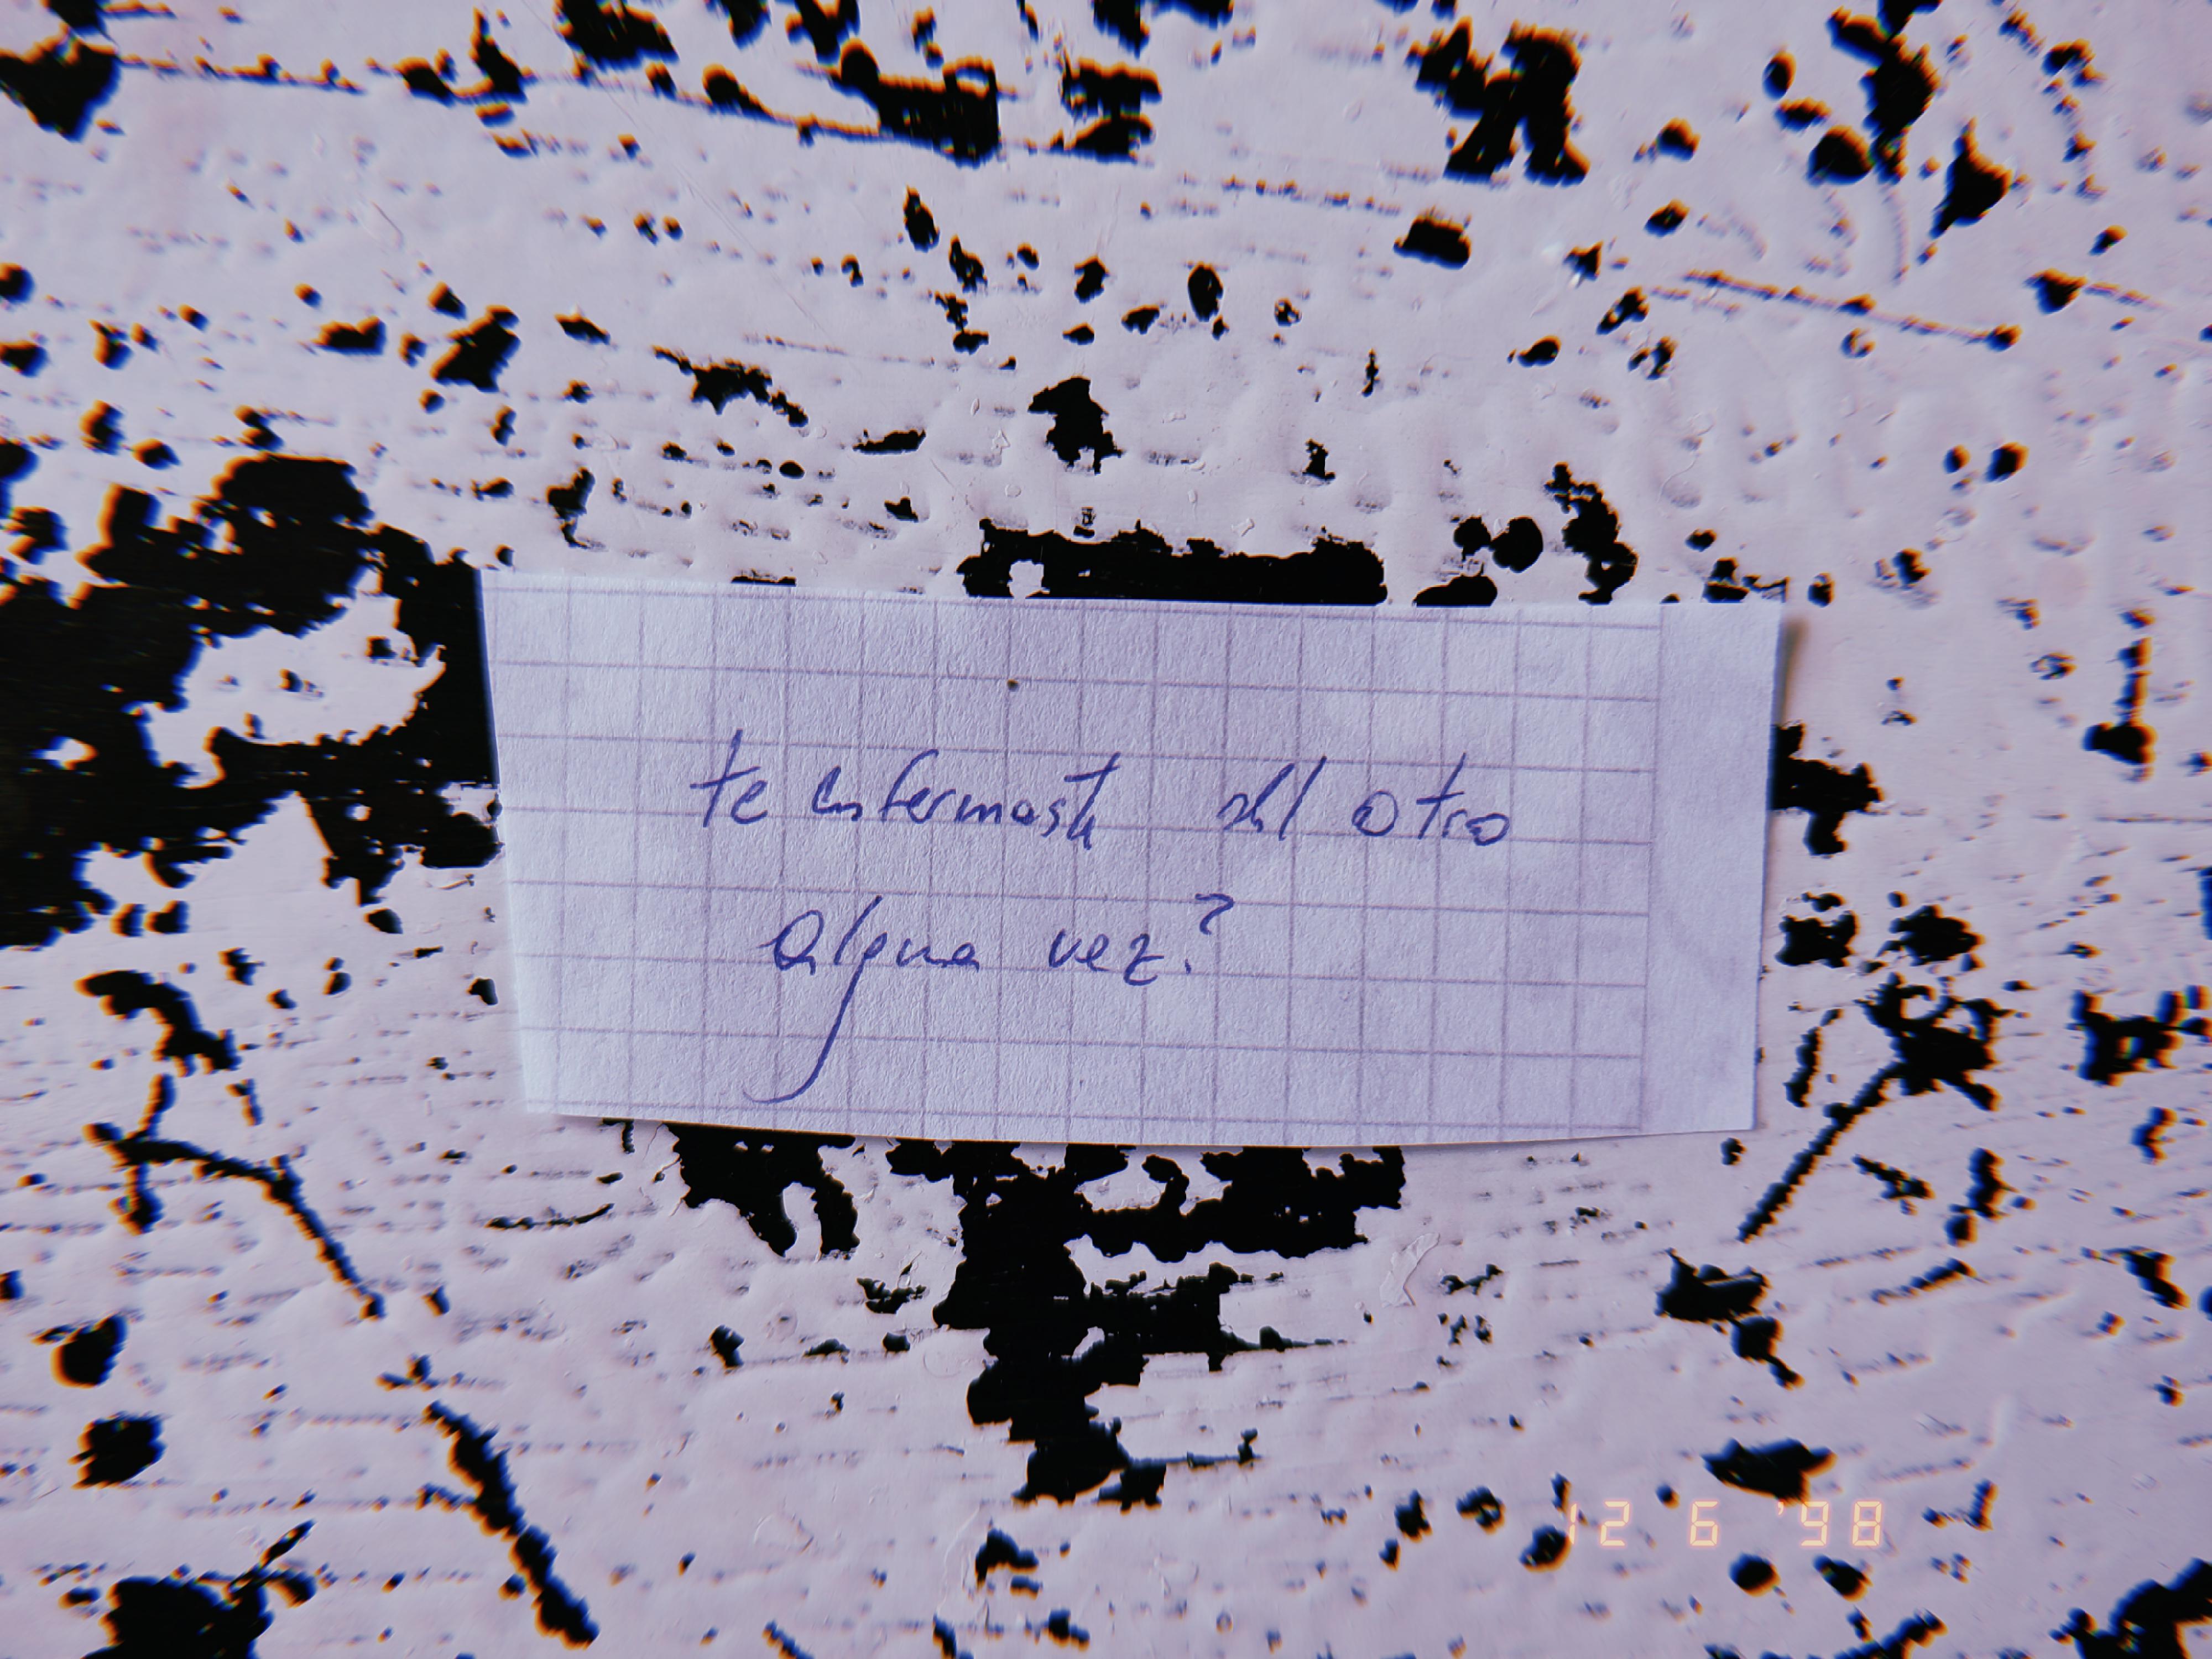 te enfermaste del otro
alguna vez?
12 6 '98